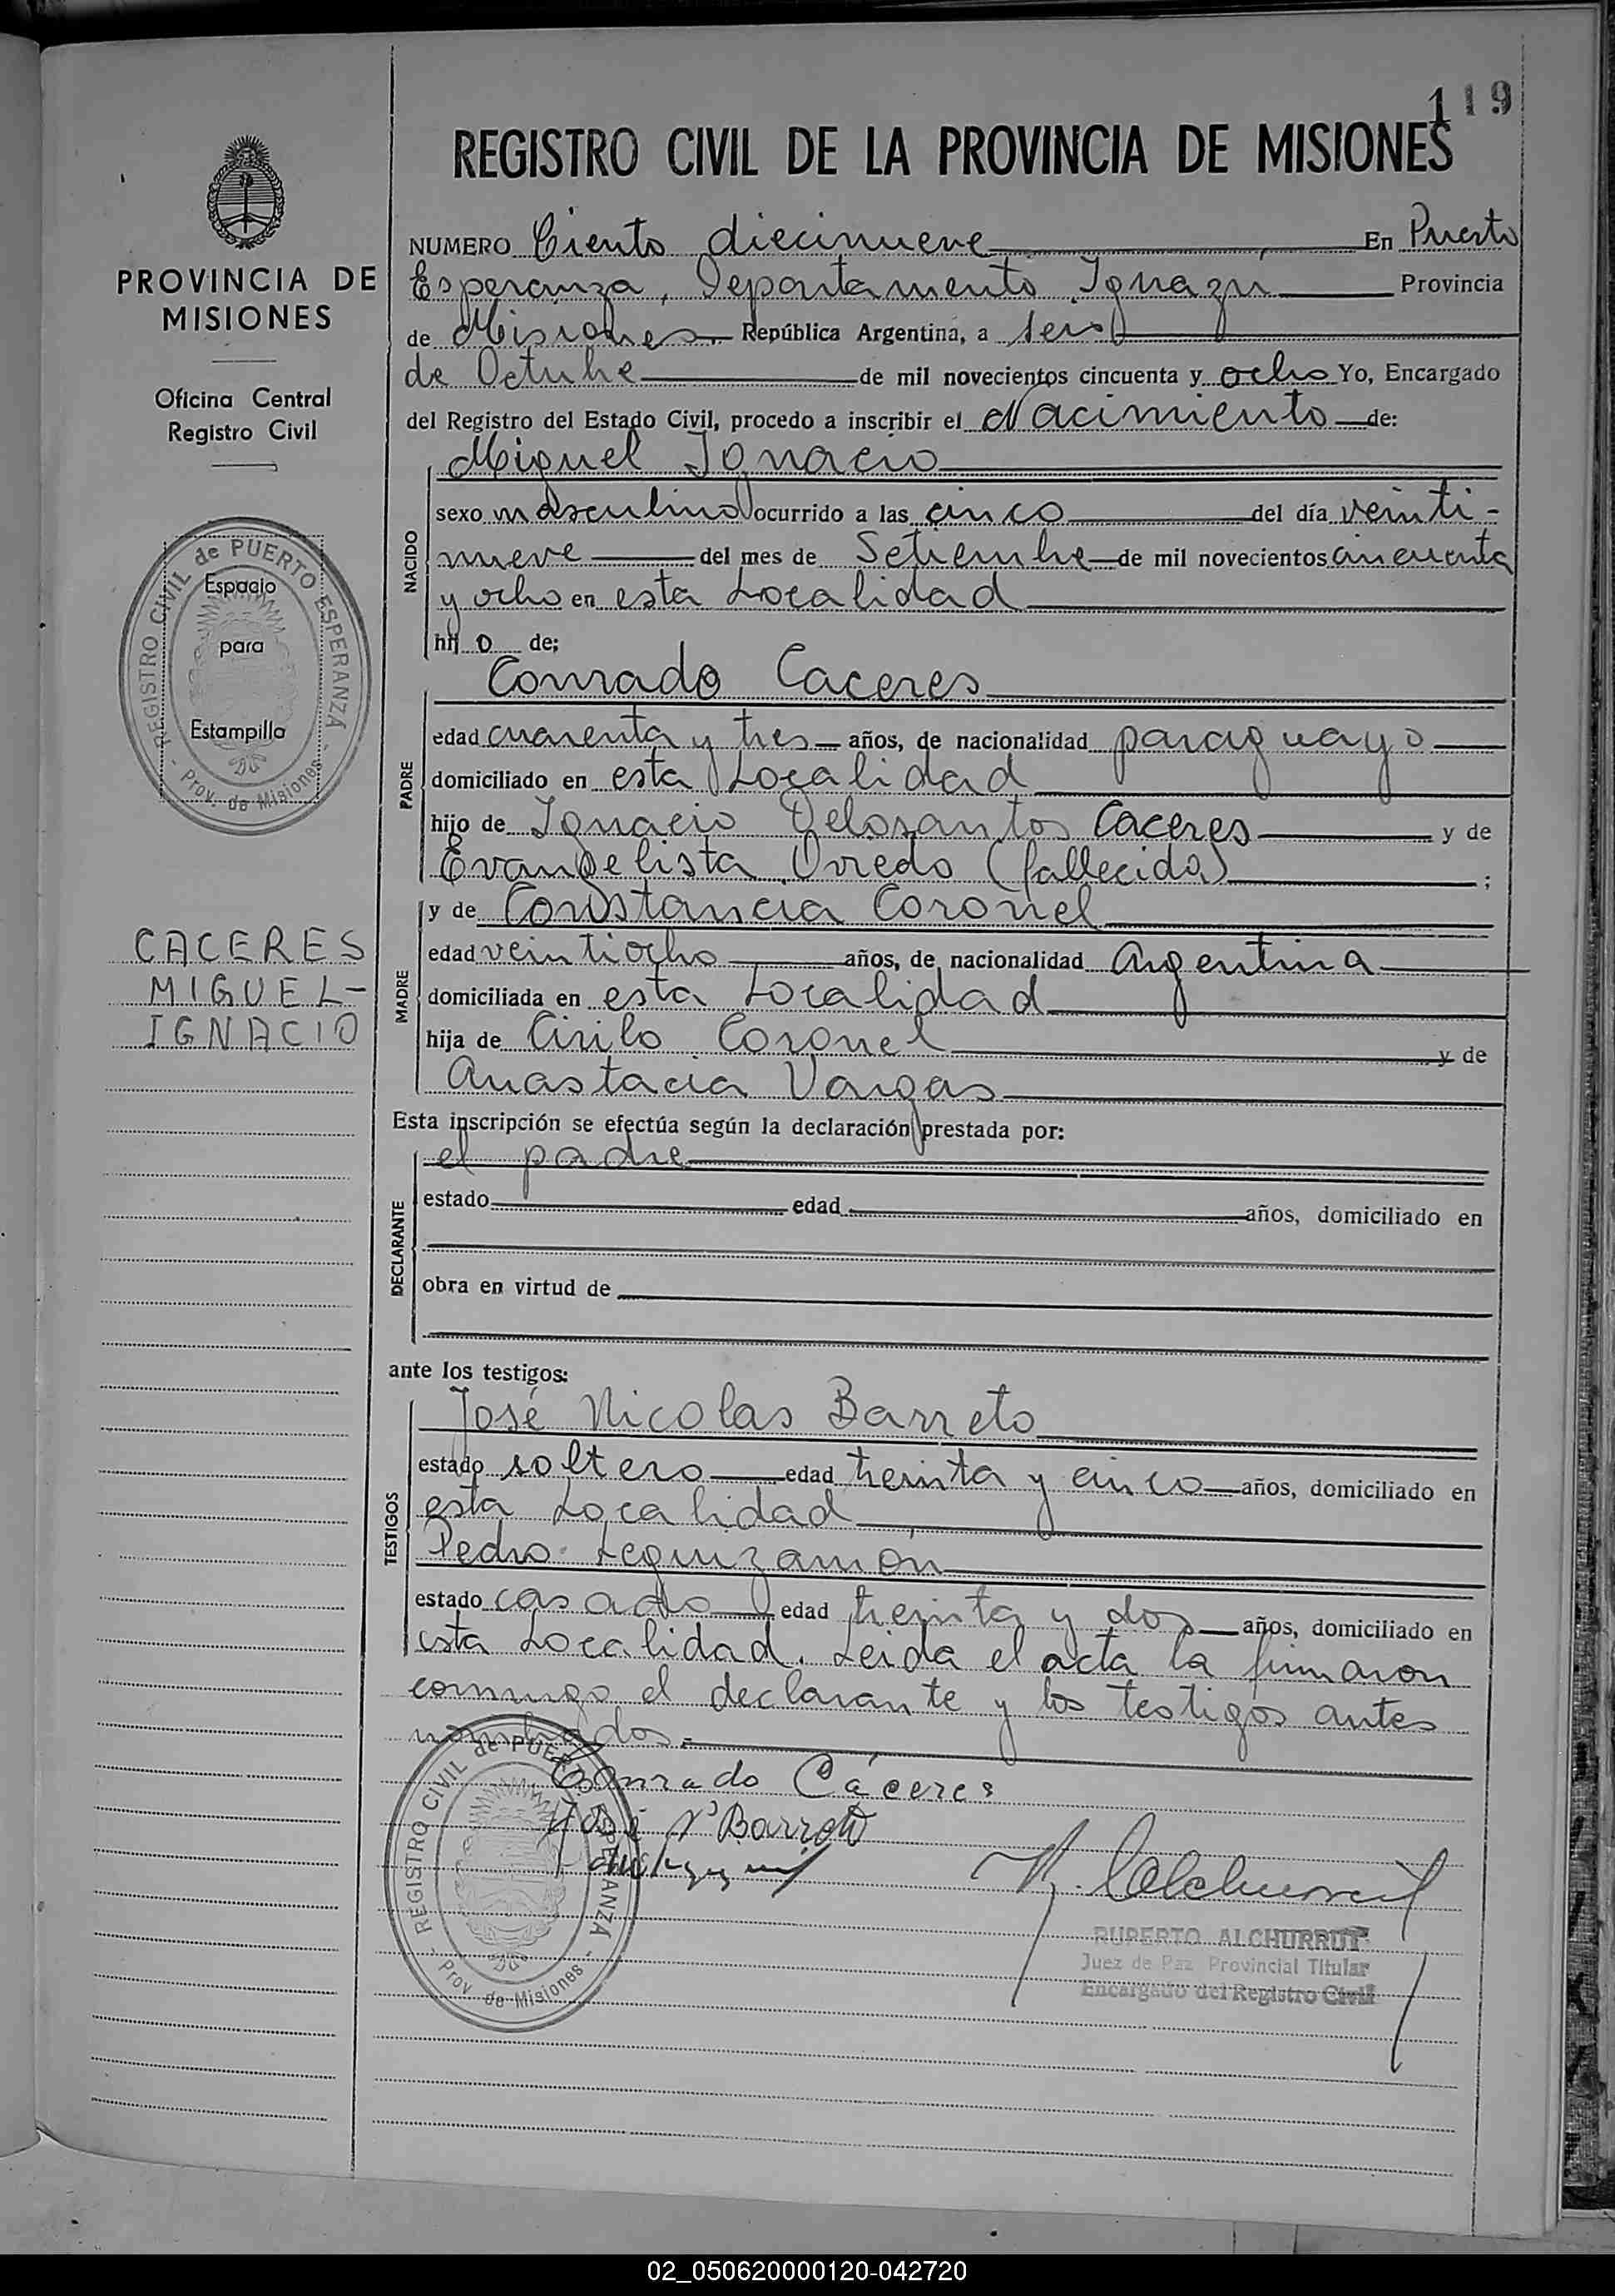 119
REGISTRO CIVIL DE LA PROVINCIA DE MISIONES
PROVINCIA DE
MISIONES
Oficina Central
Registro Civil
REGISTRO CIVIL de PUERTO ESPERANZA
- Prov. de Misiones -
Espacio
para
Estampilla
CACERES
MIGUEL-
IGNACIO
NUMERO Ciento diecinueve En Puerto
Esperanza, Departamento Iguazú Provincia
de Misiones República Argentina, a seis
de Octubre de mil novecientos cincuenta y ocho Yo, Encargado
del Registro del Estado Civil, procedo a inscribir el Nacimiento de:
NACIDO
Miguel Ignacio
sexo masculino ocurrido a las cinco del día veinti-
nueve del mes de Setiembre de mil novecientos cincuenta
y ocho en esta Localidad
hij o de;
PADRE
Conrado Caceres
edad cuarenta y tres años, de nacionalidad paraguayo
domiciliado en esta Localidad
hijo de Ignacio Delosantos Caceres y de
Evangelista Oviedo (fallecida) ;
MADRE
y de Constancia Coronel
edad veintiocho años, de nacionalidad Argentina
domiciliada en esta Localidad
hija de Cirilo Coronel y de
Anastacia Vargas
Esta inscripción se efectúa según la declaración prestada por:
DECLARANTE
el padre
estado edad años, domiciliado en
obra en virtud de
ante los testigos:
TESTIGOS
José Nicolas Barreto
estado soltero edad treinta y cinco años, domiciliado en
esta Localidad
Pedro Leguizamón
estado casado edad treinta y dos años, domiciliado en
esta Localidad. Leida el acta la firmaron
conmigo el declarante y los testigos antes
nombrados.-
Conrado Cáceres
José N Barreto
REGISTRO CIVIL de PUERTO ESPERANZA
- Prov. de Misiones -
R. Alchurrut
RUPERTO ALCHURRUT
Juez de Paz Provincial Titular
Encargado del Registro Civil
02_050620000120-042720